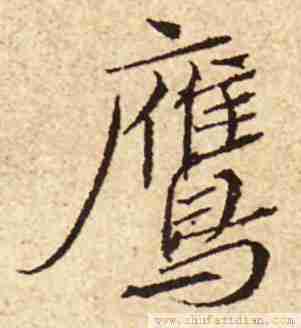 鷹
www.shufazidian.com